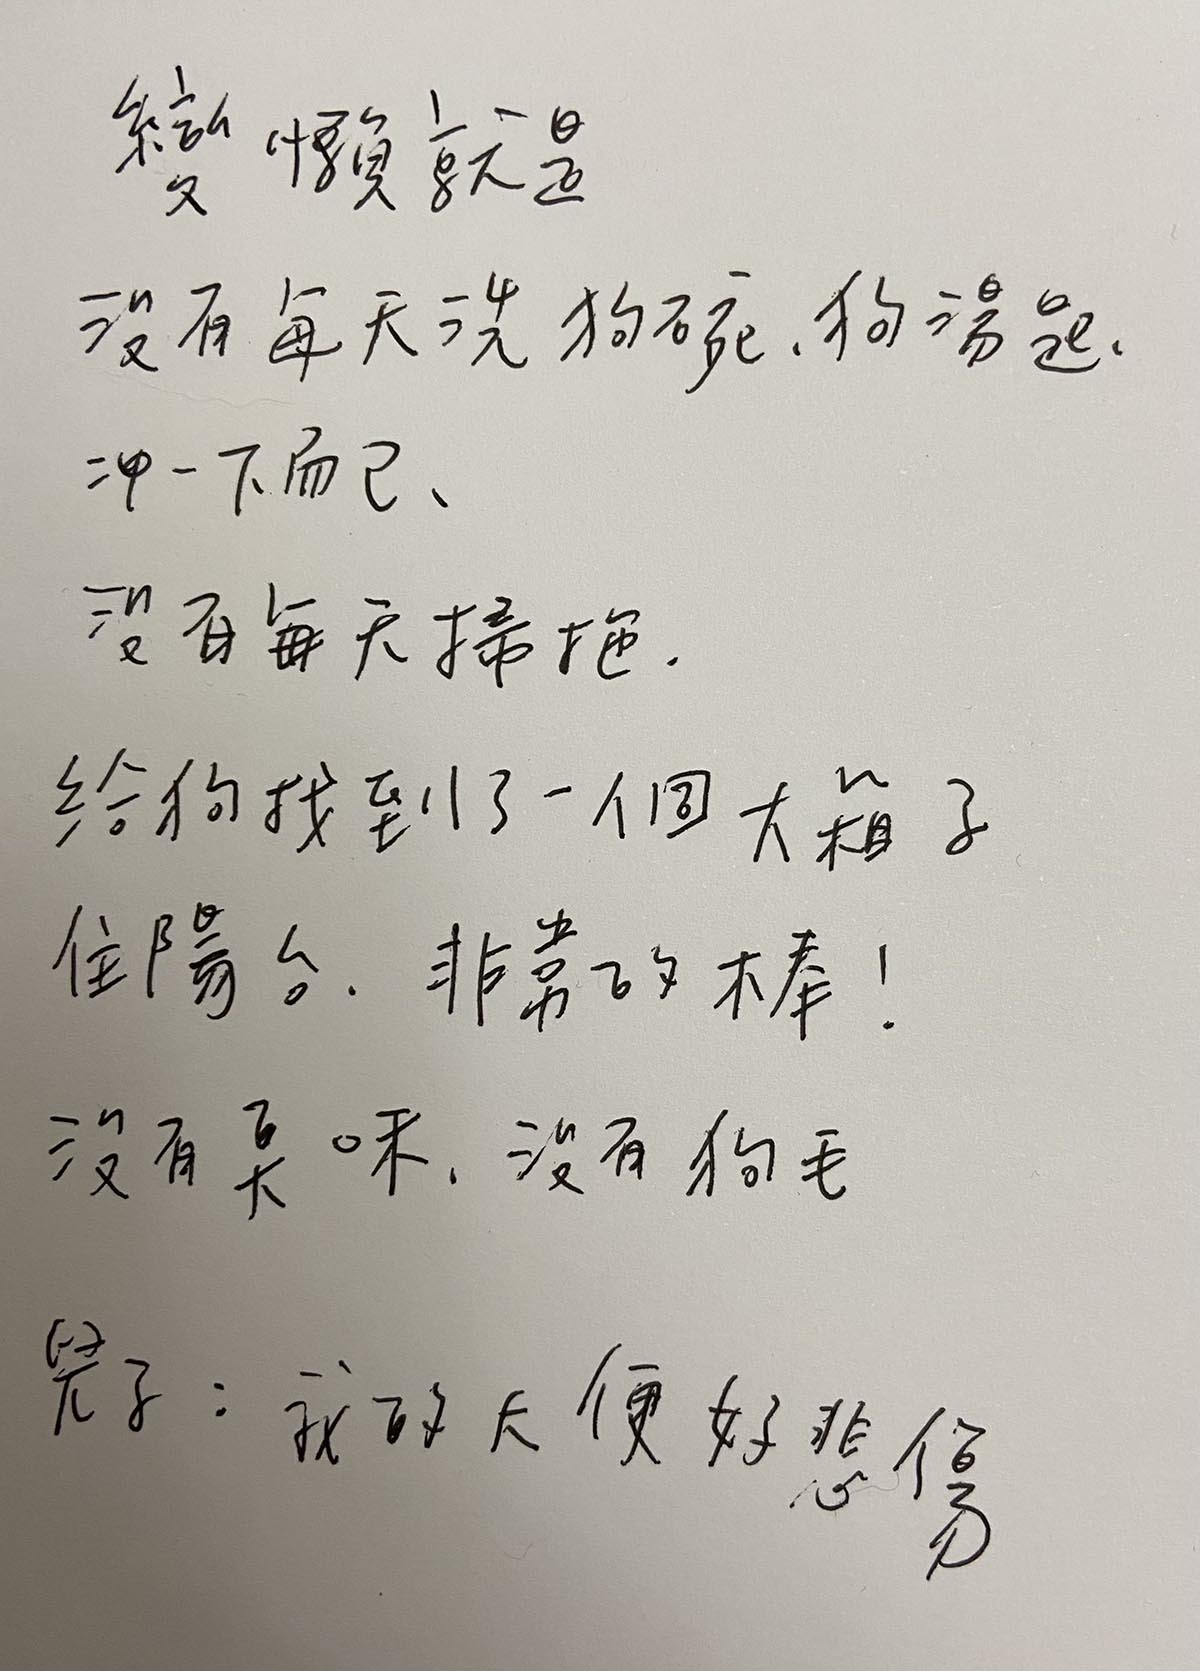 變懶就是
沒有每天洗狗碗、狗湯匙、
沖一下而已、
沒有每天掃拖.
給狗找到了一個大箱子
住陽台.非常的棒!
沒有臭味、沒有狗毛
兒子:我的大便好悲傷